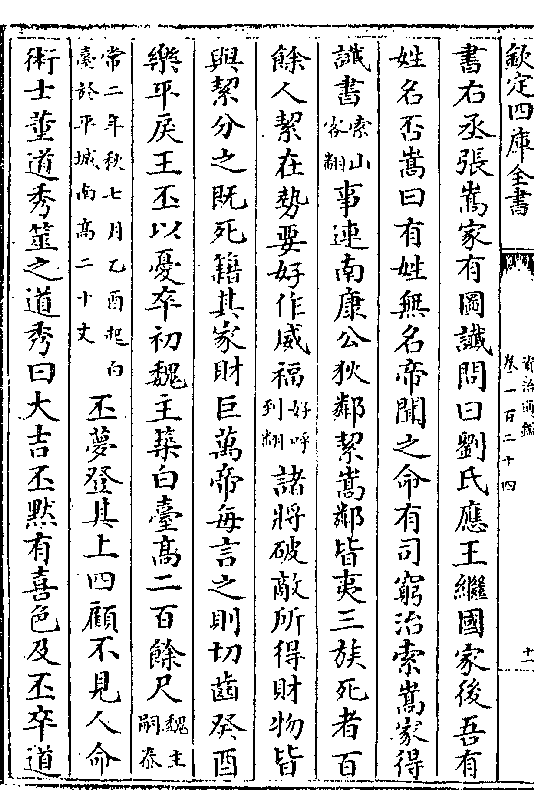 欽定四庫全書
資治通鑑
卷一百二十四
書右丞張嵩家有圖讖問曰劉氏應王繼國家後吾有
姓名否嵩曰有姓無名帝聞之命有司窮治索嵩家得
讖書索山客翻事連南康公狄鄰絜嵩鄰皆夷三族死者百
餘人絜在勢要好作威福好呼到翻諸將破敵所得財物皆
與絜分之既死籍其家財巨萬帝每言之則切齒癸酉
樂平戾王丕以憂卒初魏主築白臺高二百餘尺魏主嗣泰
常二年秋七月乙酉起白臺於平城南高二十丈丕夢登其上四顧不見人命
術士董道秀筮之道秀曰大吉丕黙有喜色及丕卒道